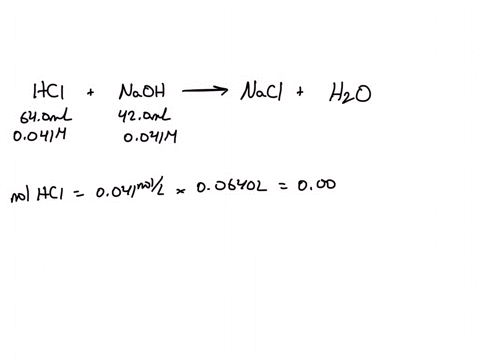 HCl + NaOH → NaCl + H2O
64.0mL 42.0mL
0.041M 0.041M
mol HCl = 0.041 mol/L × 0.0640L = 0.00